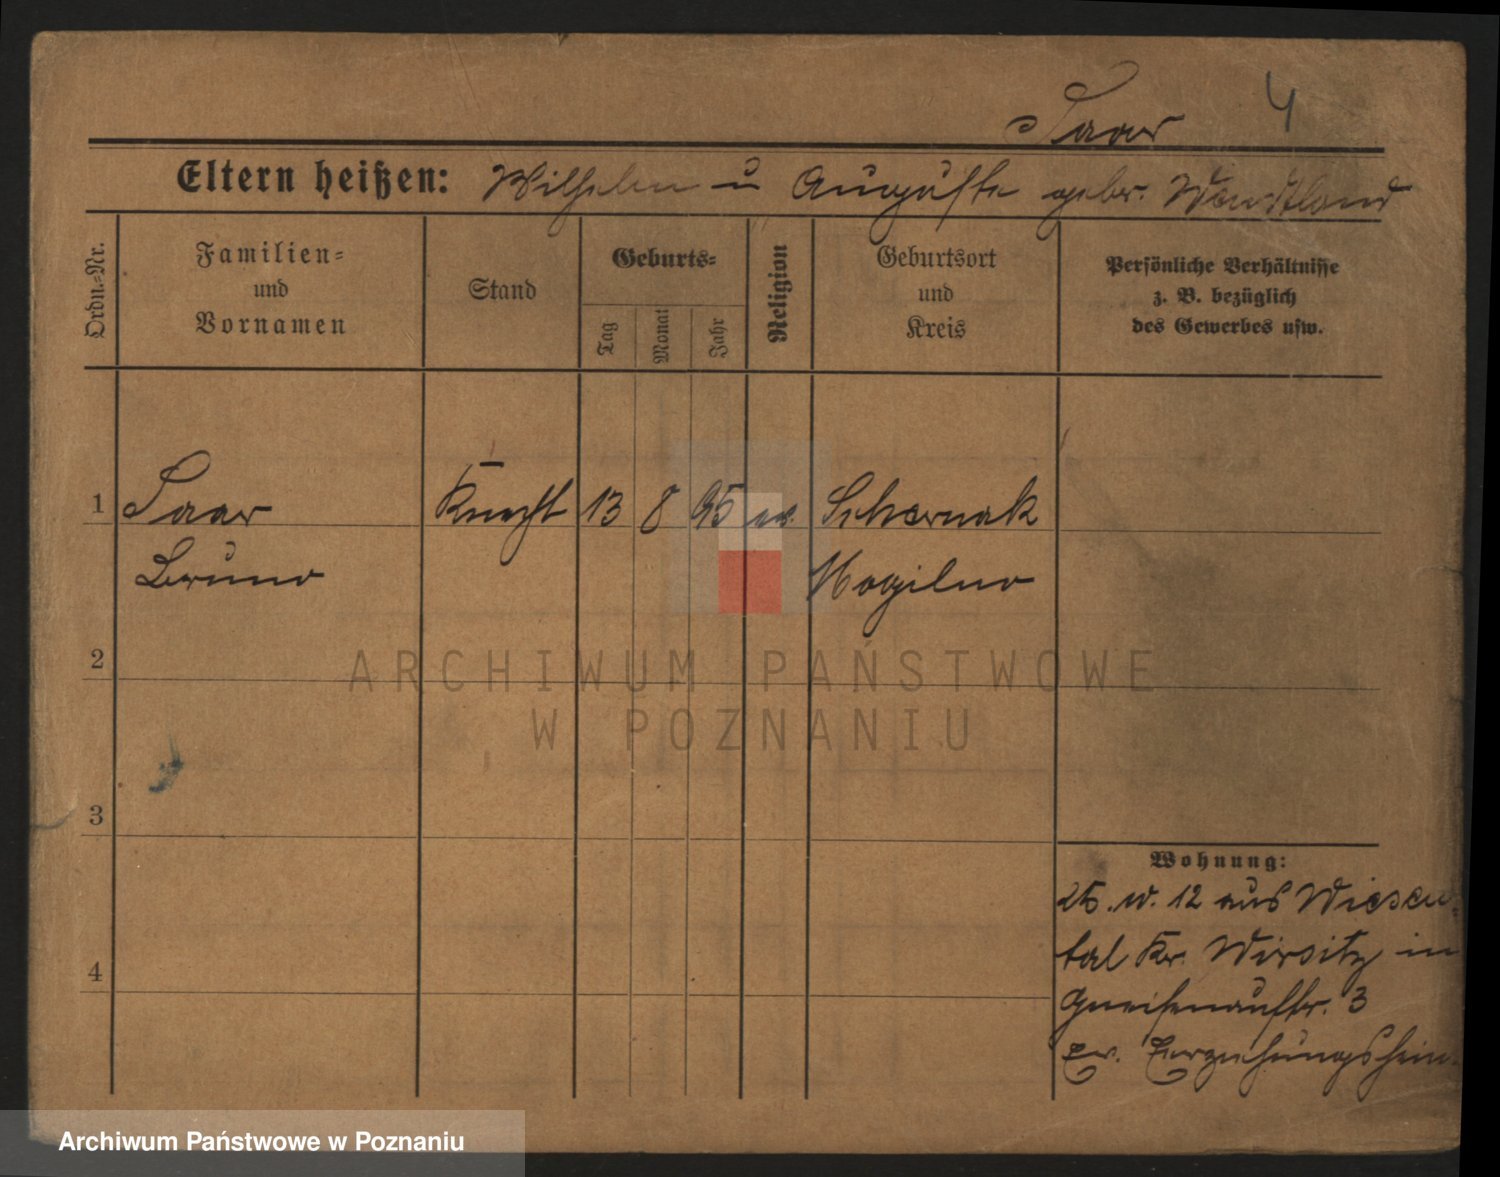 Saar 4
Eltern heißen: Wilhelm u Auguste gebr. Wendtland
Ordn.=Nr.
Familien=
und
Vornamen
Stand
Geburts=
Tag
Monat
Jahr
Religion
Geburtsort
und
Kreis
Persönliche Verhältnisse
z. B. bezüglich
des Gewerbes usw.
1 Saar Knecht 13 8 95 ev. Schernak
Bruno Mogilno
2
ARCHIWUM PAŃSTWOWE
W POZNANIU
3
Wohnung:
w. 12 aus Wiesen-
tal Kr. Wirsitz in
4
Gneisenaustr. 3
Ev. Erziehungsheim
Archiwum Państwowe w Poznaniu